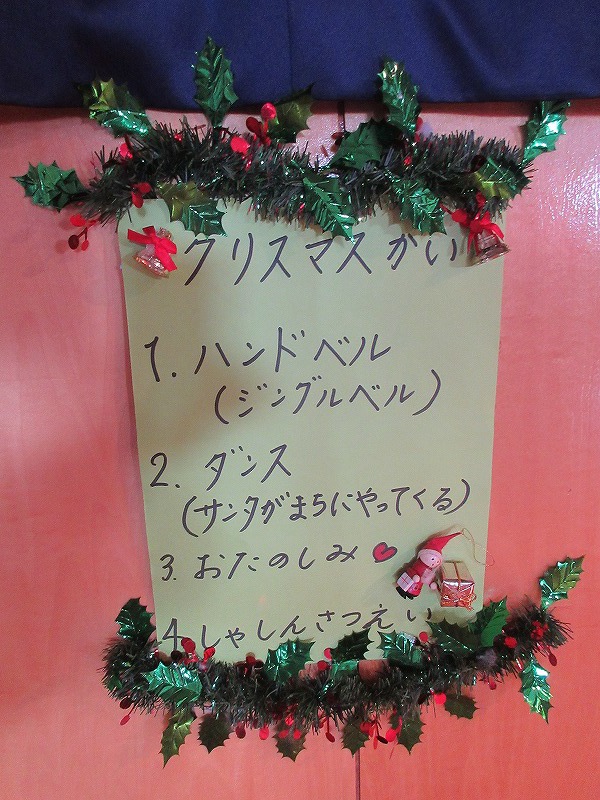 クリスマスかい
1. ハンドベル
(ジングルベル)
2. ダンス
(サンタがまちにやってくる)
3. おたのしみ♥
4. しゃしんさつえい